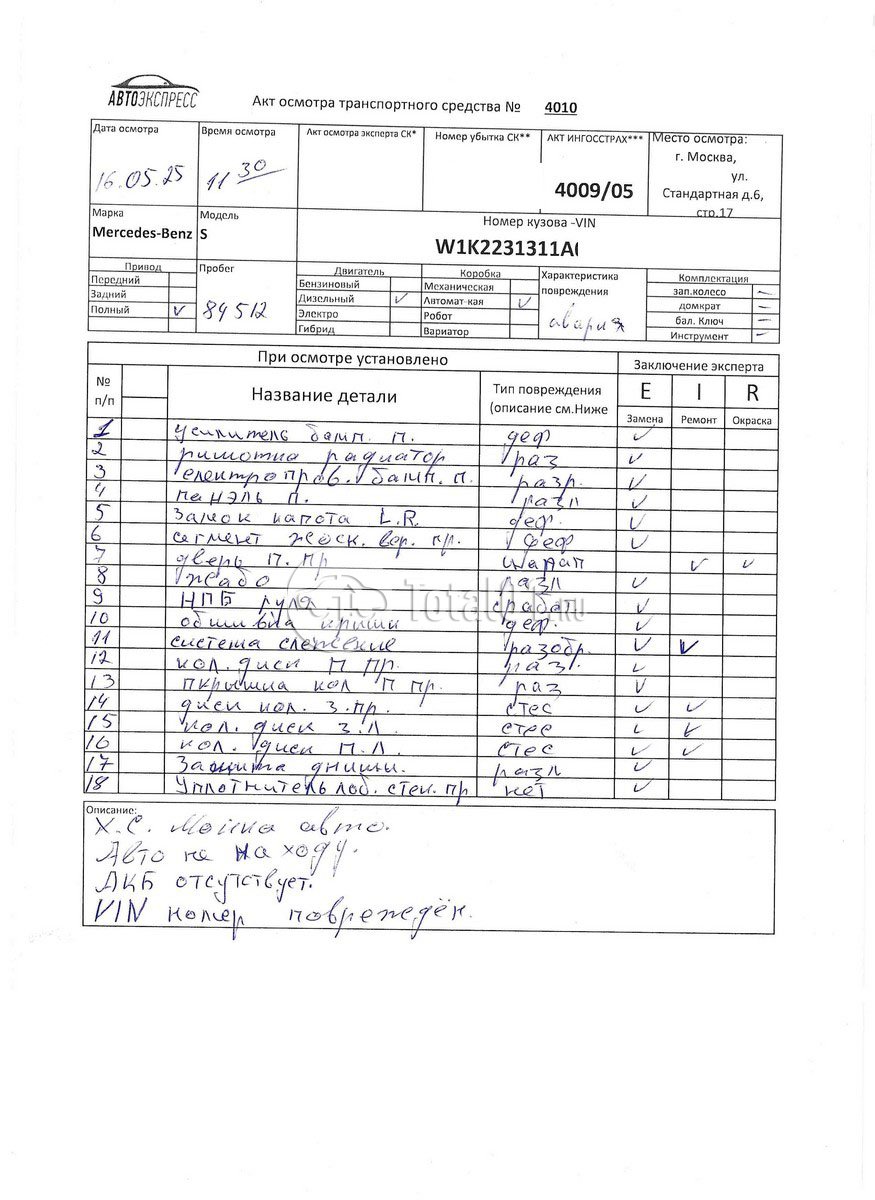 АВТОЭКСПРЕСС
Акт осмотра транспортного средства № 4010
Дата осмотра Время осмотра Акт осмотра эксперта СК* Номер убытка СК** АКТ ИНГОССТРАХ*** Место осмотра:
16.05.25 11 30 4009/05 г. Москва,
ул.
Стандартная д.6,
стр.17
Марка Модель Номер кузова -VIN
Mercedes-Benz S W1K2231311A
Привод Пробег Двигатель Коробка Характеристика повреждения Комплектация
Передний Бензиновый Механическая зап.колесо –
Задний Дизельный ✓ Автомат-кая ✓ домкрат –
Полный ✓ 84512 Электро Робот авария бал. Ключ –
Гибрид Вариатор Инструмент –
При осмотре установлено Заключение эксперта
№ п/п Название детали Тип повреждения (описание см.Ниже E I R
Замена Ремонт Окраска
1 усилитель бамп. п. деф ✓
2 ришотка радиатор раз ✓
3 електропров. бамп. п. разр. ✓
4 панэль п. разл ✓
5 Замок капота L.R. деф. ✓
6 сегмент жоск. вер. пр. деф ✓
7 дверь п. пр царап ✓ ✓
8 жабо разл ✓
9 НПБ руля сработ ✓
10 обшивка крыши деф. ✓
11 система слежение разобр. ✓ ✓
12 кол. диск П пр. раз. ✓
13 пкрышка кол П пр. раз ✓
14 диск кол. з.пр. стес ✓ ✓
15 кол. диск з.л. стес ✓ ✓
16 кол. диск П.Л. стес ✓ ✓
17 Защита днищи. разл ✓
18 Уплотнитель лоб. стек. пр нет ✓
Описание:
Х.С. Мойка авто.
Авто не на ходу.
АКБ отсутствует.
VIN номер повреждён.